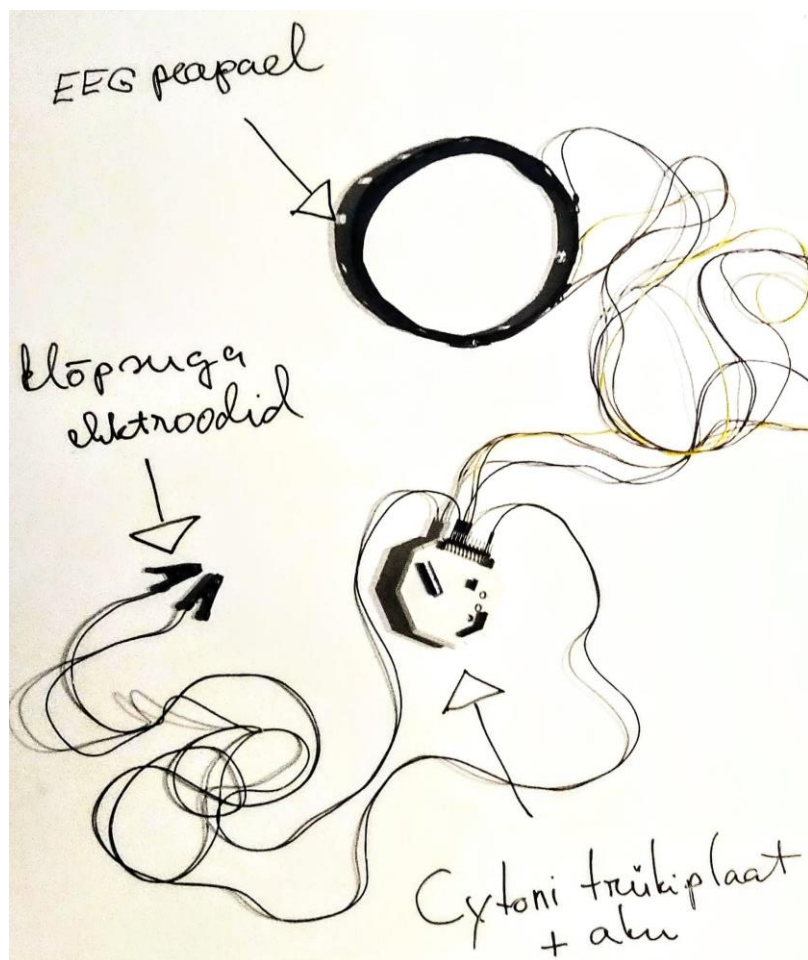 EEG peapael
klõpsuga
elektroodid
Cytoni trükiplaat
+ aku